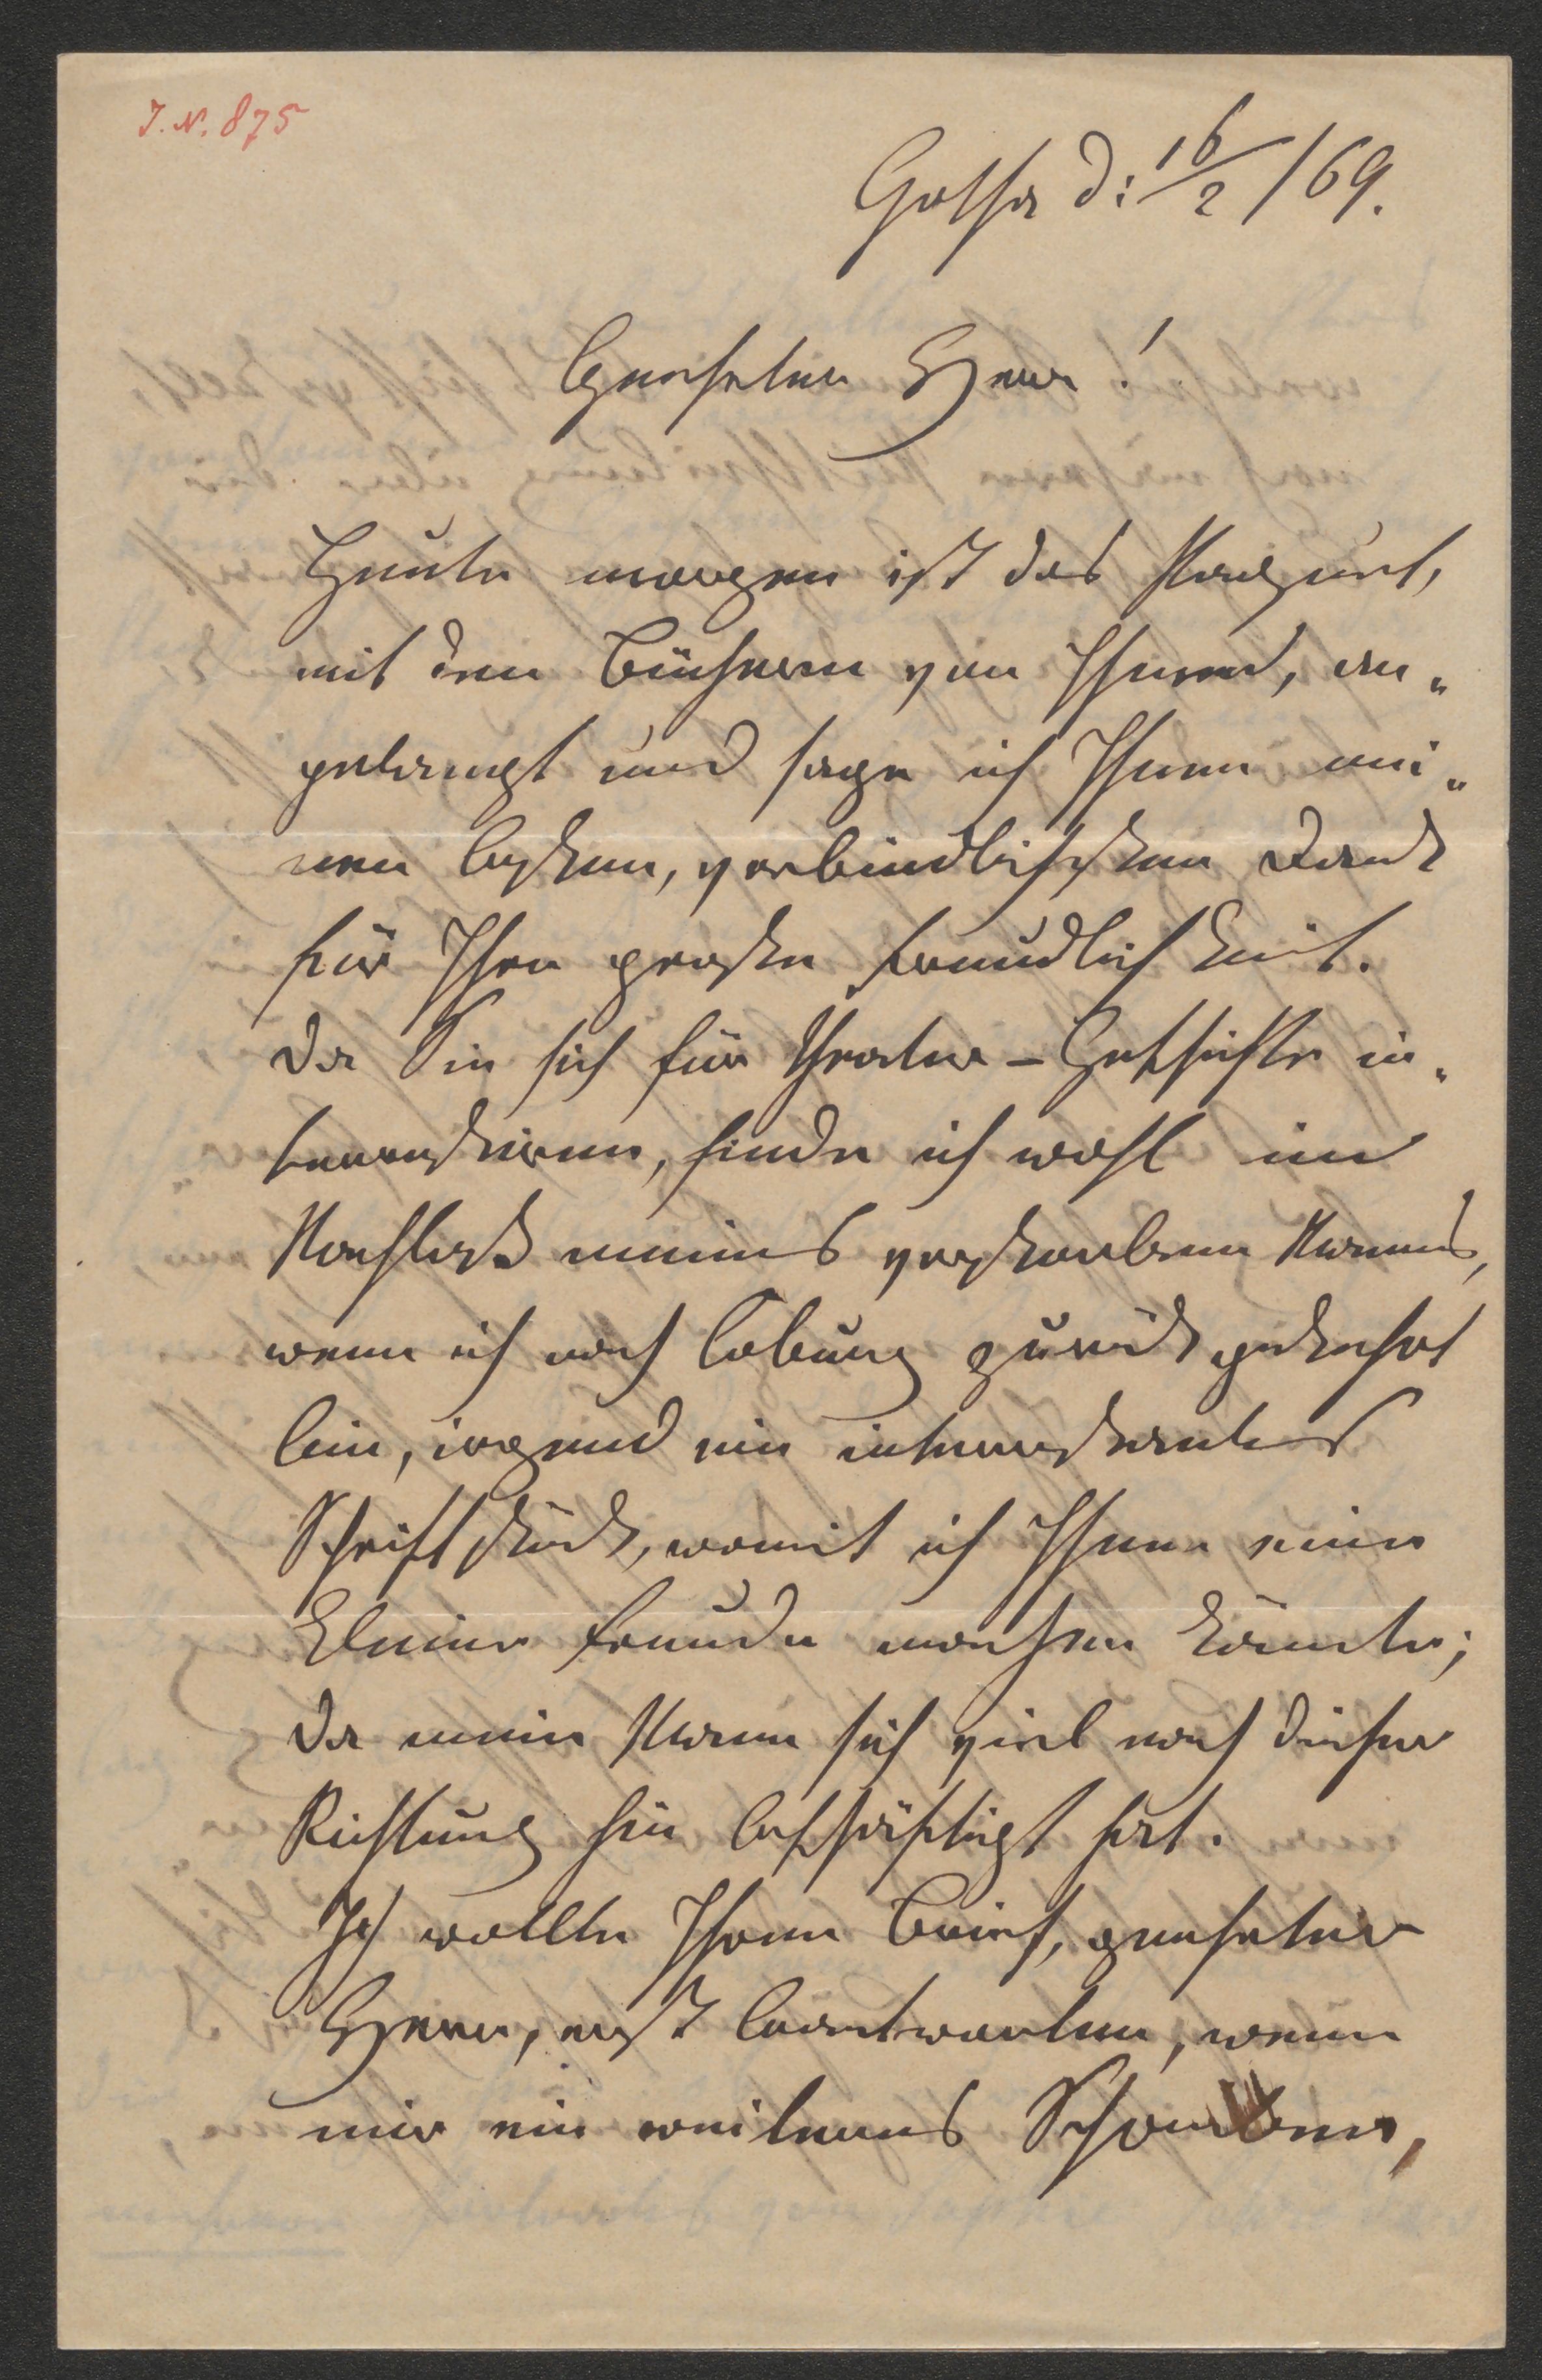 J. N. 875
Gotha d: 16/2 /69.
Geehrter Herr!
Heute morgen ist das Paquet,
mit den Büchern von Ihnen, an„
gelangt und sage ich Ihnen mei„
nen besten, verbindlichsten Dank
für Ihre große Freundlichkeit.
Da Sie sich für Theater-Geschichte in„
teressieren, finde ich wohl im
Nachlaß meines verstorbenen Mannes,
wenn ich nach Coburg zurückgekehrt
bin, irgend ein interessantes
Schriftstück, womit ich Ihnen eine
kleine Freude machen könnte;
da mein Mann sich viel nach dieser
Richtung hin beschäftigt hat.
Ich wollte Ihren Brief, geehrter
Herr, erst beantworten, wenn
mir ein weiteres